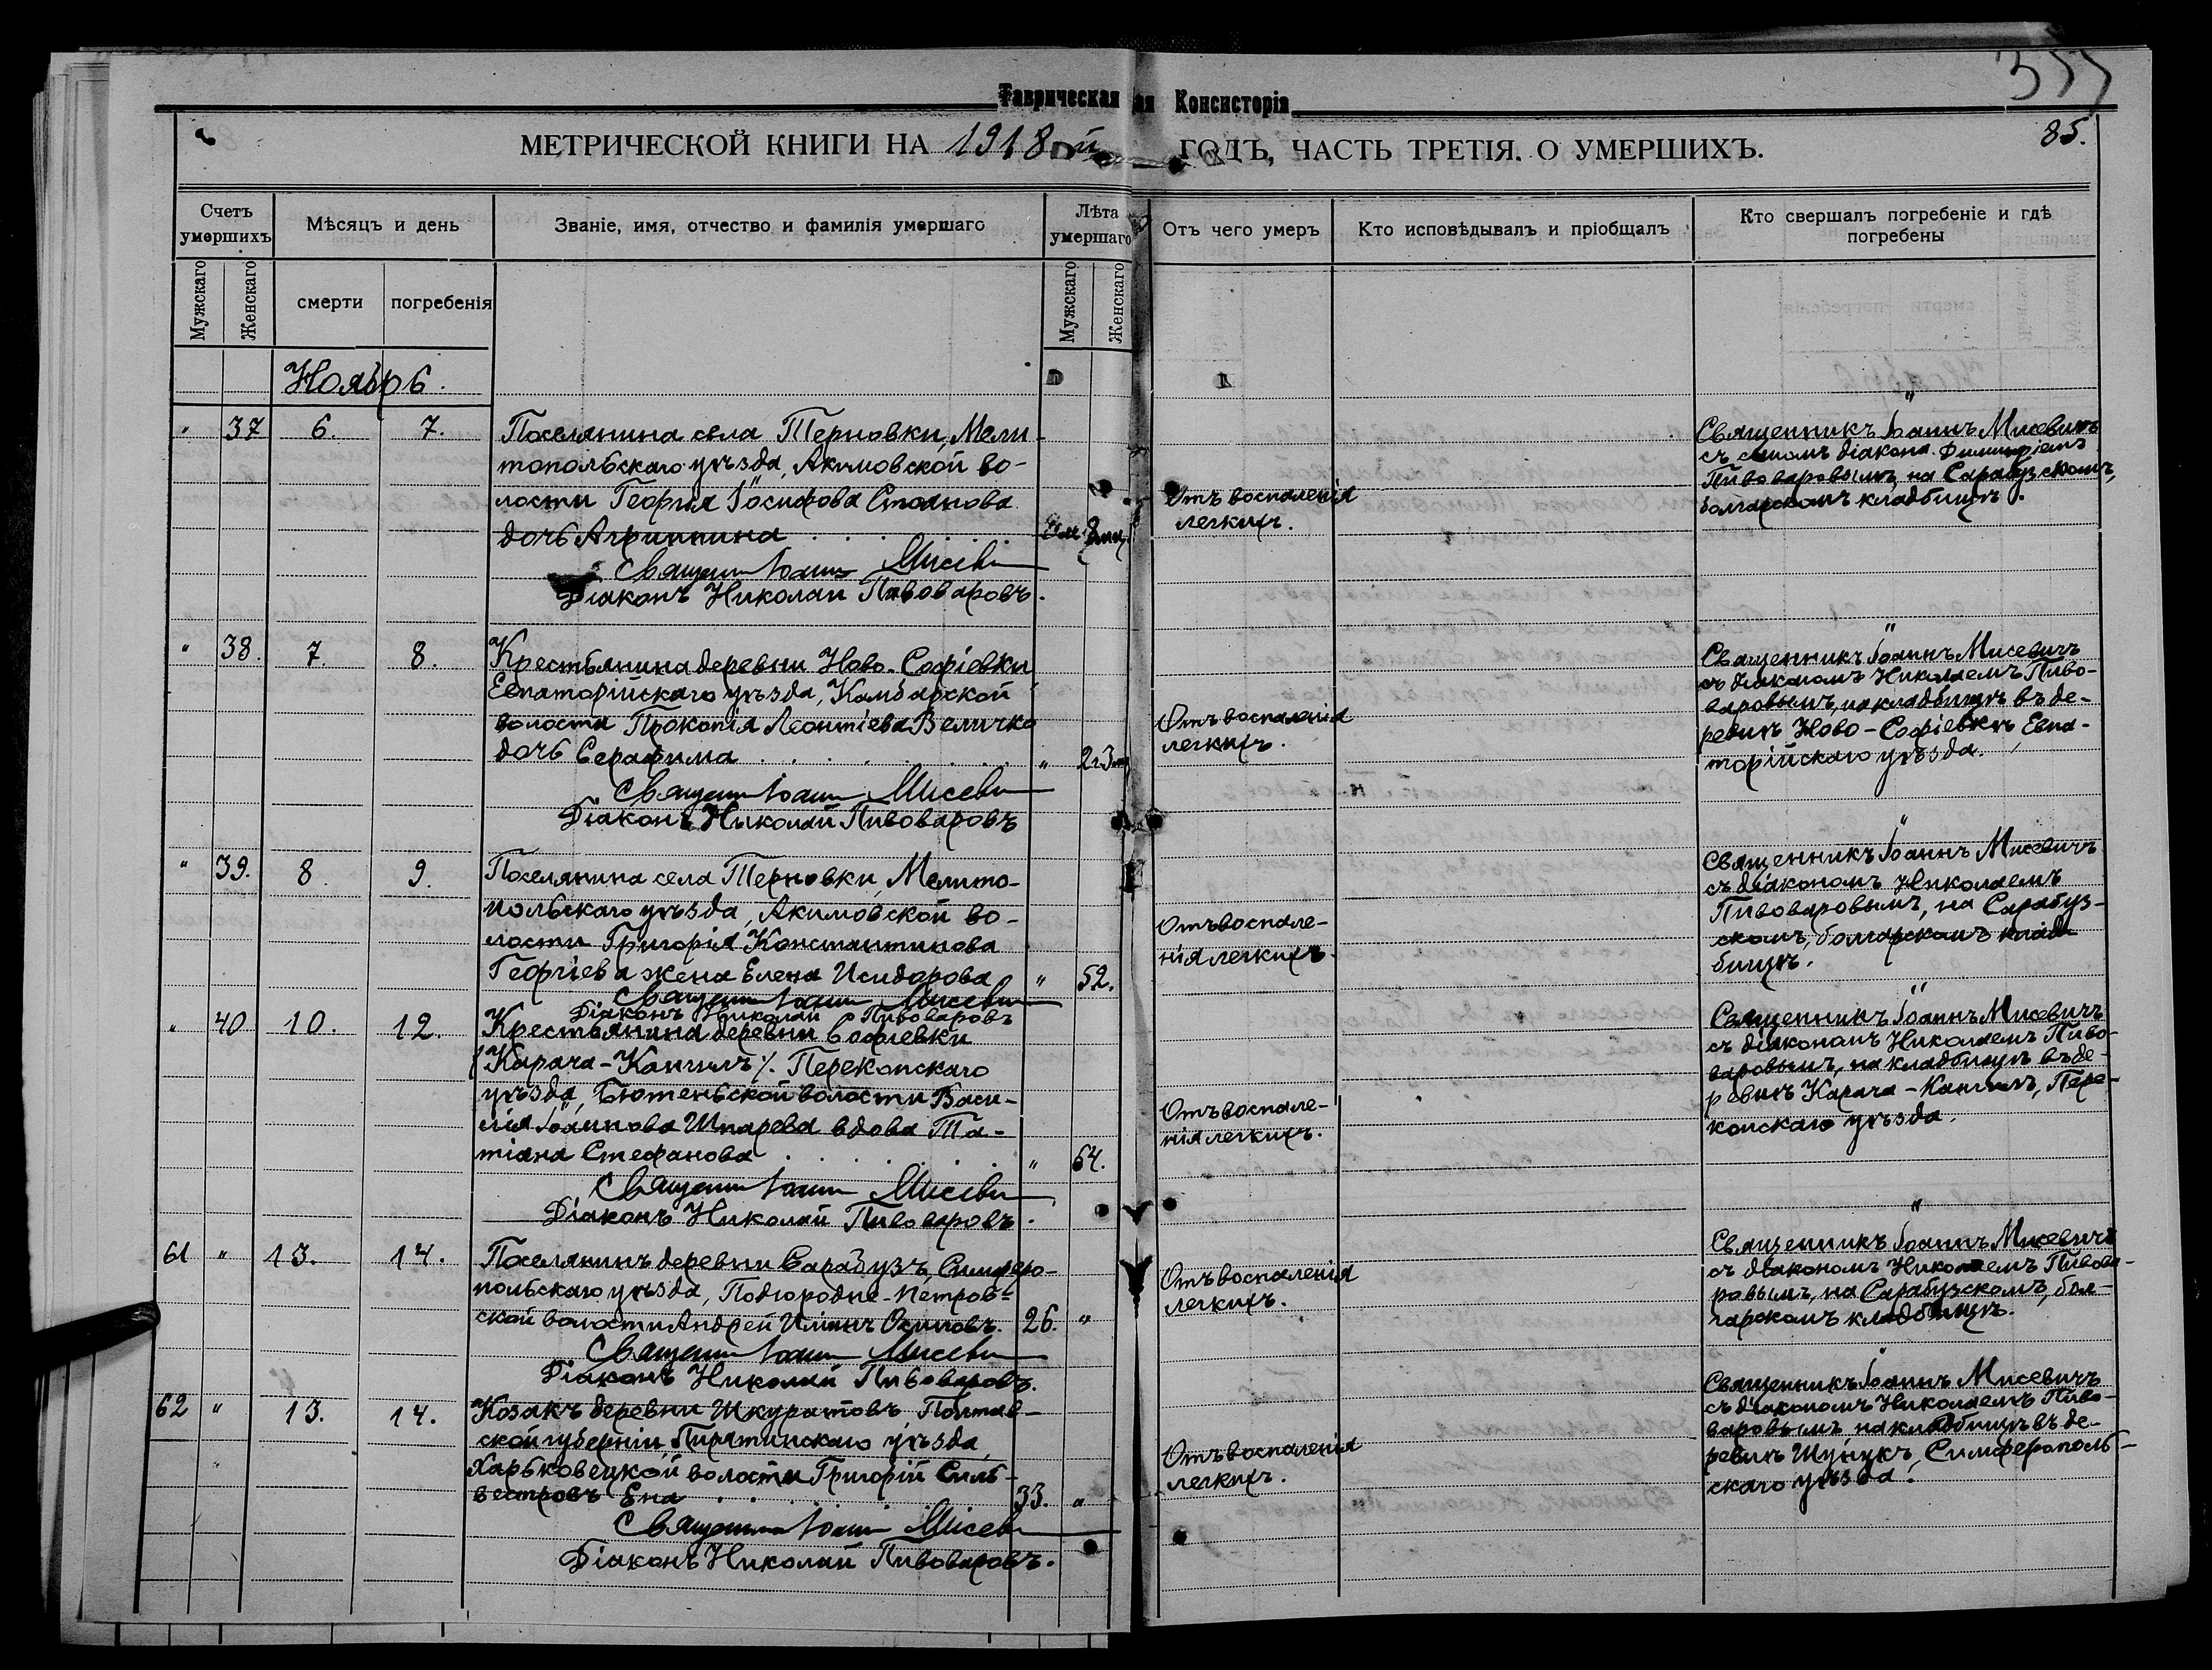 355
Таврическая ая Консисторія
85.
МЕТРИЧЕСКОЙ КНИГИ НА 1918 й ГОДЪ, ЧАСТЬ ТРЕТІЯ. О УМЕРШИХЪ.
Счетъ умершихъ
Мѣсяцъ и день
Званіе, имя, отчество и фамилія умершаго
Лѣта умершаго
Отъ чего умеръ
Кто исповѣдывалъ и пріобщалъ
Кто свершалъ погребеніе и гдѣ погребены
Мужскаго
Женскаго
смерти
погребенія
Мужскаго
Женскаго
Ноябрь.
" 37 6. 7.
Поселянина села Терновки, Мели-
топольскаго уѣзда, Акимовской во-
лости Георгія Іосифова Стоянова
дочь Агриппина
Священникъ Іоаннъ Мисевичъ
Діаконъ Николай Пивоваровъ.
Отъ воспаленія
легкихъ.
Священникъ Іоаннъ Мисевичъ
съ сыномъ діакона Димитріемъ
Пивоваровымъ, на Сарабузскомъ,
болгарскомъ кладбищѣ.
" 38. 7. 8.
Крестьянина деревни Ново-Софіевки
Евпаторійскаго уѣзда, Камбарской
волости Прокопія Леонтіева Величко
дочь Серафима " 2
Священникъ Іоаннъ Мисевичъ
Діаконъ Николай Пивоваровъ
Отъ воспаленія
легкихъ.
Священникъ Іоаннъ Мисевичъ
съ діакономъ Николаемъ Пиво-
варовымъ, на кладбищѣ въ де-
ревнѣ Ново-Софіевкѣ, Евпа-
торійскаго уѣзда.
" 39. 8. 9.
Поселянина села Терновки, Мелито-
польскаго уѣзда, Акимовской во-
лости Григорія Константинова
Георгіева жена Елена Исидорова " 52.
Священникъ Іоаннъ Мисевичъ
Діаконъ Николай Пивоваровъ
Отъ воспале-
нія легкихъ.
Священникъ Іоаннъ Мисевичъ
съ діакономъ Николаемъ
Пивоваровымъ, на Сарабуз-
скомъ, болгарскомъ клад-
бищѣ.
" 40 10. 12.
Крестьянина деревни Софіевки
/Карача-Кангилъ/. Перекопскаго
уѣзда, Бютеньской волости Васи-
лія Іоаннова Шпарева вдова Та-
тіана Стефанова " 64.
Священникъ Іоаннъ Мисевичъ
Діаконъ Николай Пивоваровъ.
Отъ воспале-
нія легкихъ.
Священникъ Іоаннъ Мисевичъ
съ діакономъ Николаемъ Пиво-
варовымъ, на кладбищѣ въ де-
ревнѣ Карача-Кангилъ, Пере-
копскаго уѣзда.
61 " 13. 14.
Поселянинъ деревни Сарабузъ, Симферо-
польскаго уѣзда, Подгородне-Петров-
ской волости Андрей Иліинъ Осиповъ. 26. "
Священникъ Іоаннъ Мисевичъ
Діаконъ Николай Пивоваровъ.
Отъ воспаленія
легкихъ.
Священникъ Іоаннъ Мисевичъ
съ діакономъ Николаемъ Пивова-
ровымъ, на Сарабузскомъ, бол-
гарскомъ кладбищѣ.
62 " 13. 14.
Козакъ деревни Шкуратовъ, Полтав-
ской губерніи, Пирятинскаго уѣзда,
Харьковецкой волости Григорій Силь-
вестровъ Ена 33. "
Священникъ Іоаннъ Мисевичъ
Діаконъ Николай Пивоваровъ.
Отъ воспаленія
легкихъ.
Священникъ Іоаннъ Мисевичъ
съ діакономъ Николаемъ Пиво-
варовымъ, на кладбищѣ въ де-
ревнѣ Шунукъ, Симферополь-
скаго уѣзда.